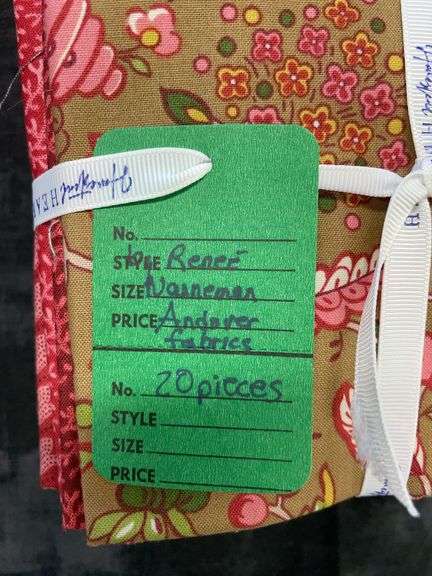 No.
by
STYLE Reneé
SIZE Nanneman
PRICE Andover
fabrics
No. 20 pieces
STYLE
SIZE
PRICE